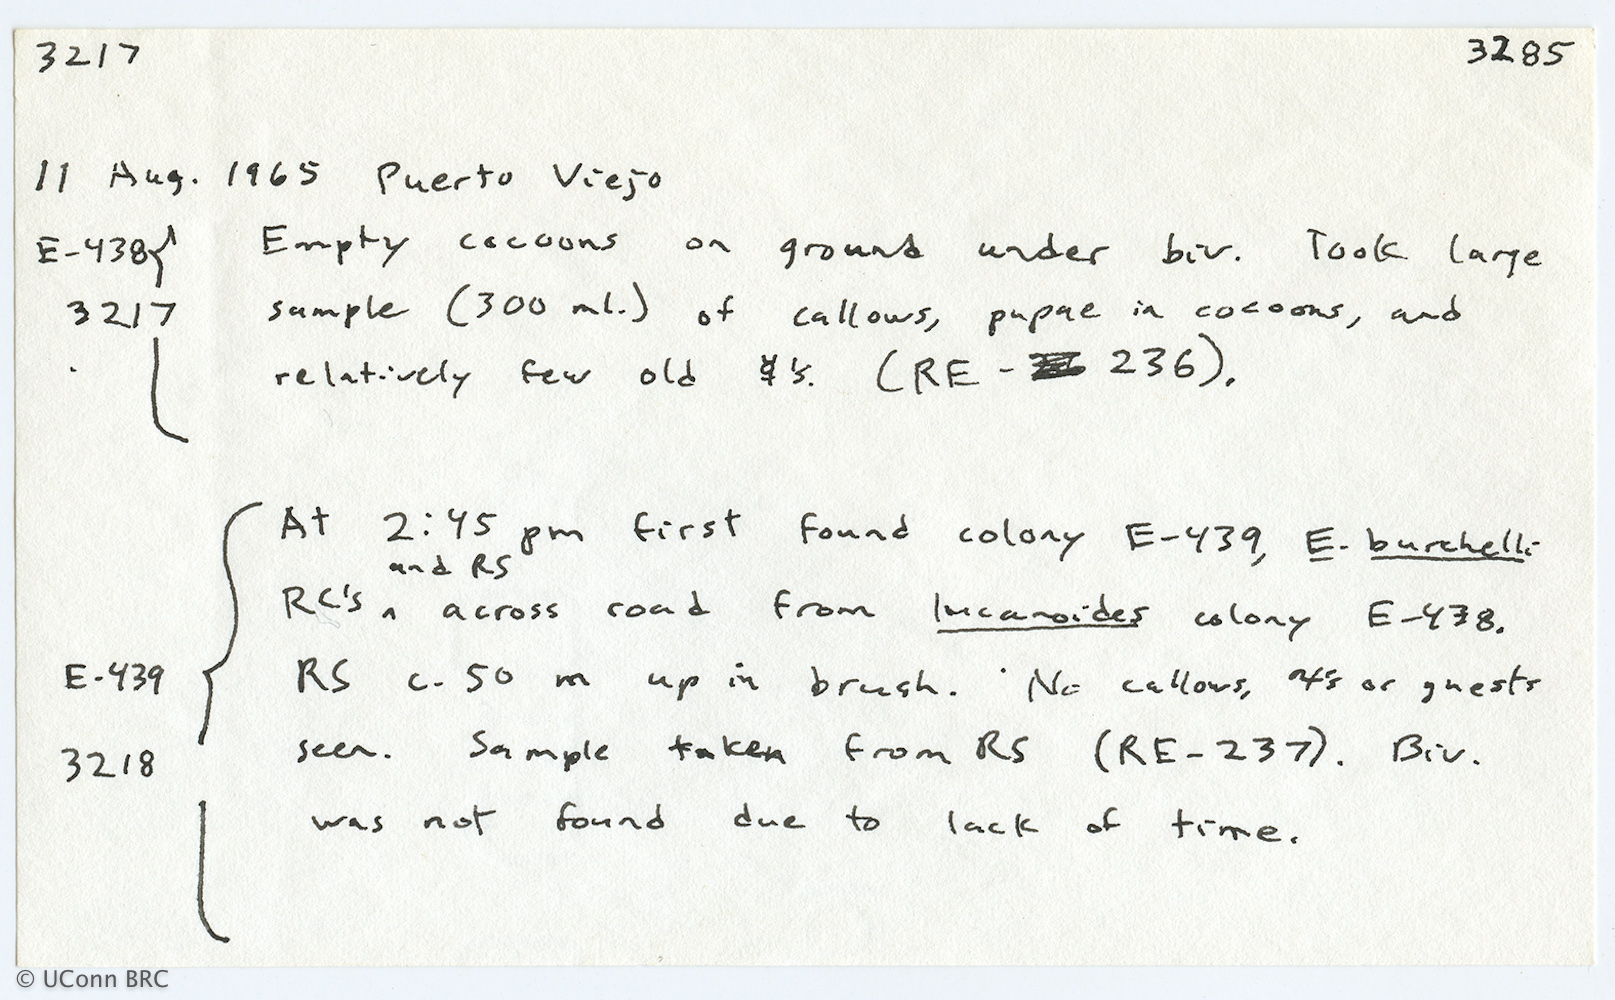 3217 3285
11 Aug. 1965 Puerto Viejo
E-438 Empty cocoons on ground under biv. Took large
3217 sample (300 ml.) of callows, pupae in cocoons, and
relatively few old ☿'s. (RE - 236).
At 2:45 pm first found colony E-439, E. burchelli
and RS
RC's ^ across road from lucanoides colony E-438.
E-439 RS c. 50 m up in brush. No callows, or guests
3218 seen. Sample taken from RS (RE-237). Biv.
was not found due to lack of time.
© UConn BRC